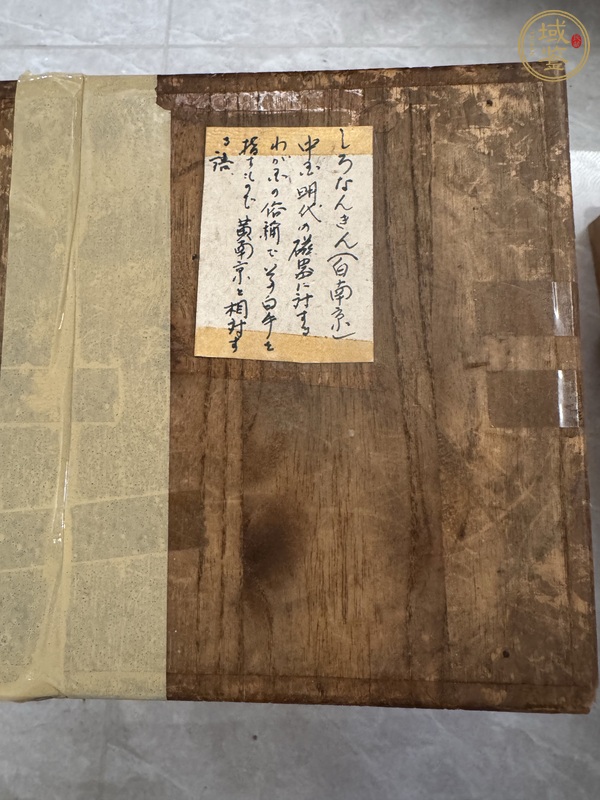 しろなんきん(白南京)
中国明代の磁器に対する
わが国の俗称で その白手を
指すもので 黄南京と相対す
る語
域鉴